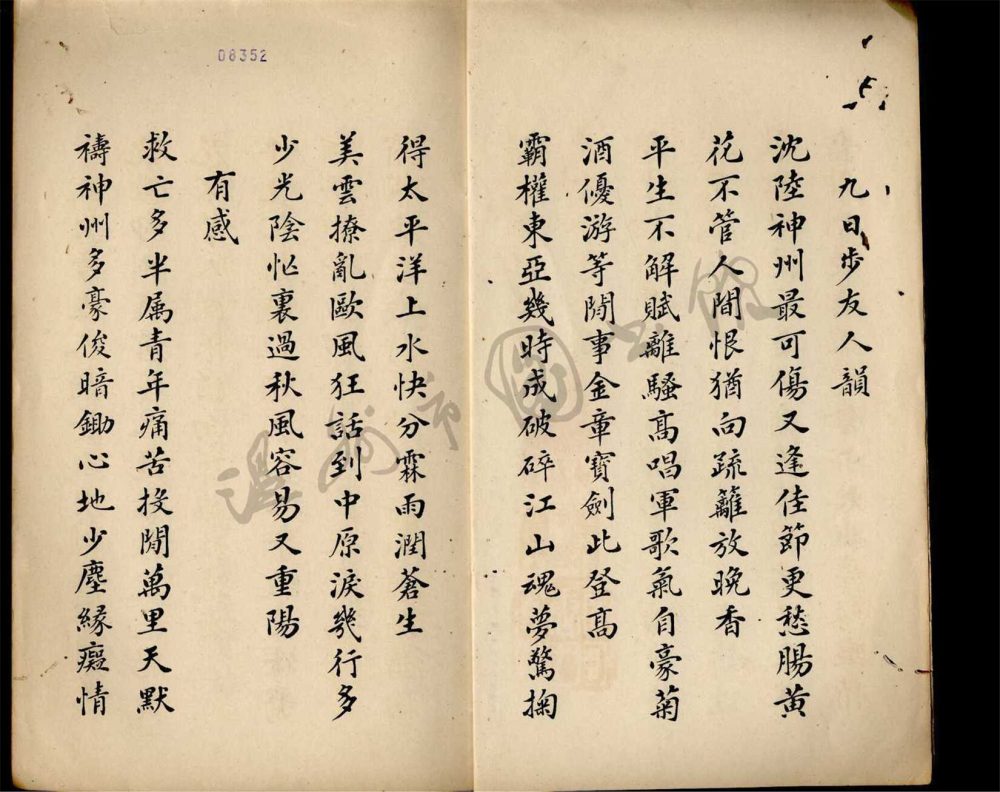 九日步友人韻
沈陸神州最可傷又逢佳節更愁腸黃
花不管人間恨猶向疏籬放晚香
平生不解賦離騷高唱軍歌氣自豪菊
酒優游等閒事金章寶劍此登高
霸權東亞幾時成破碎江山魂夢驚掬
得太平洋上水快分霖雨潤蒼生
美雲撩亂歐風狂話到中原淚幾行多
少光陰忙裏過秋風容易又重陽
有感
救亡多半属青年痛苦投閒萬里天默
禱神州多豪俊暗鋤心地少塵緣癡情
08352
溫州市圖書館